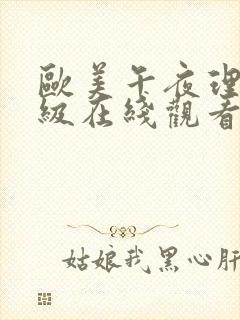 歐美午夜理
級在綫觀看
姑娘我黑心肝